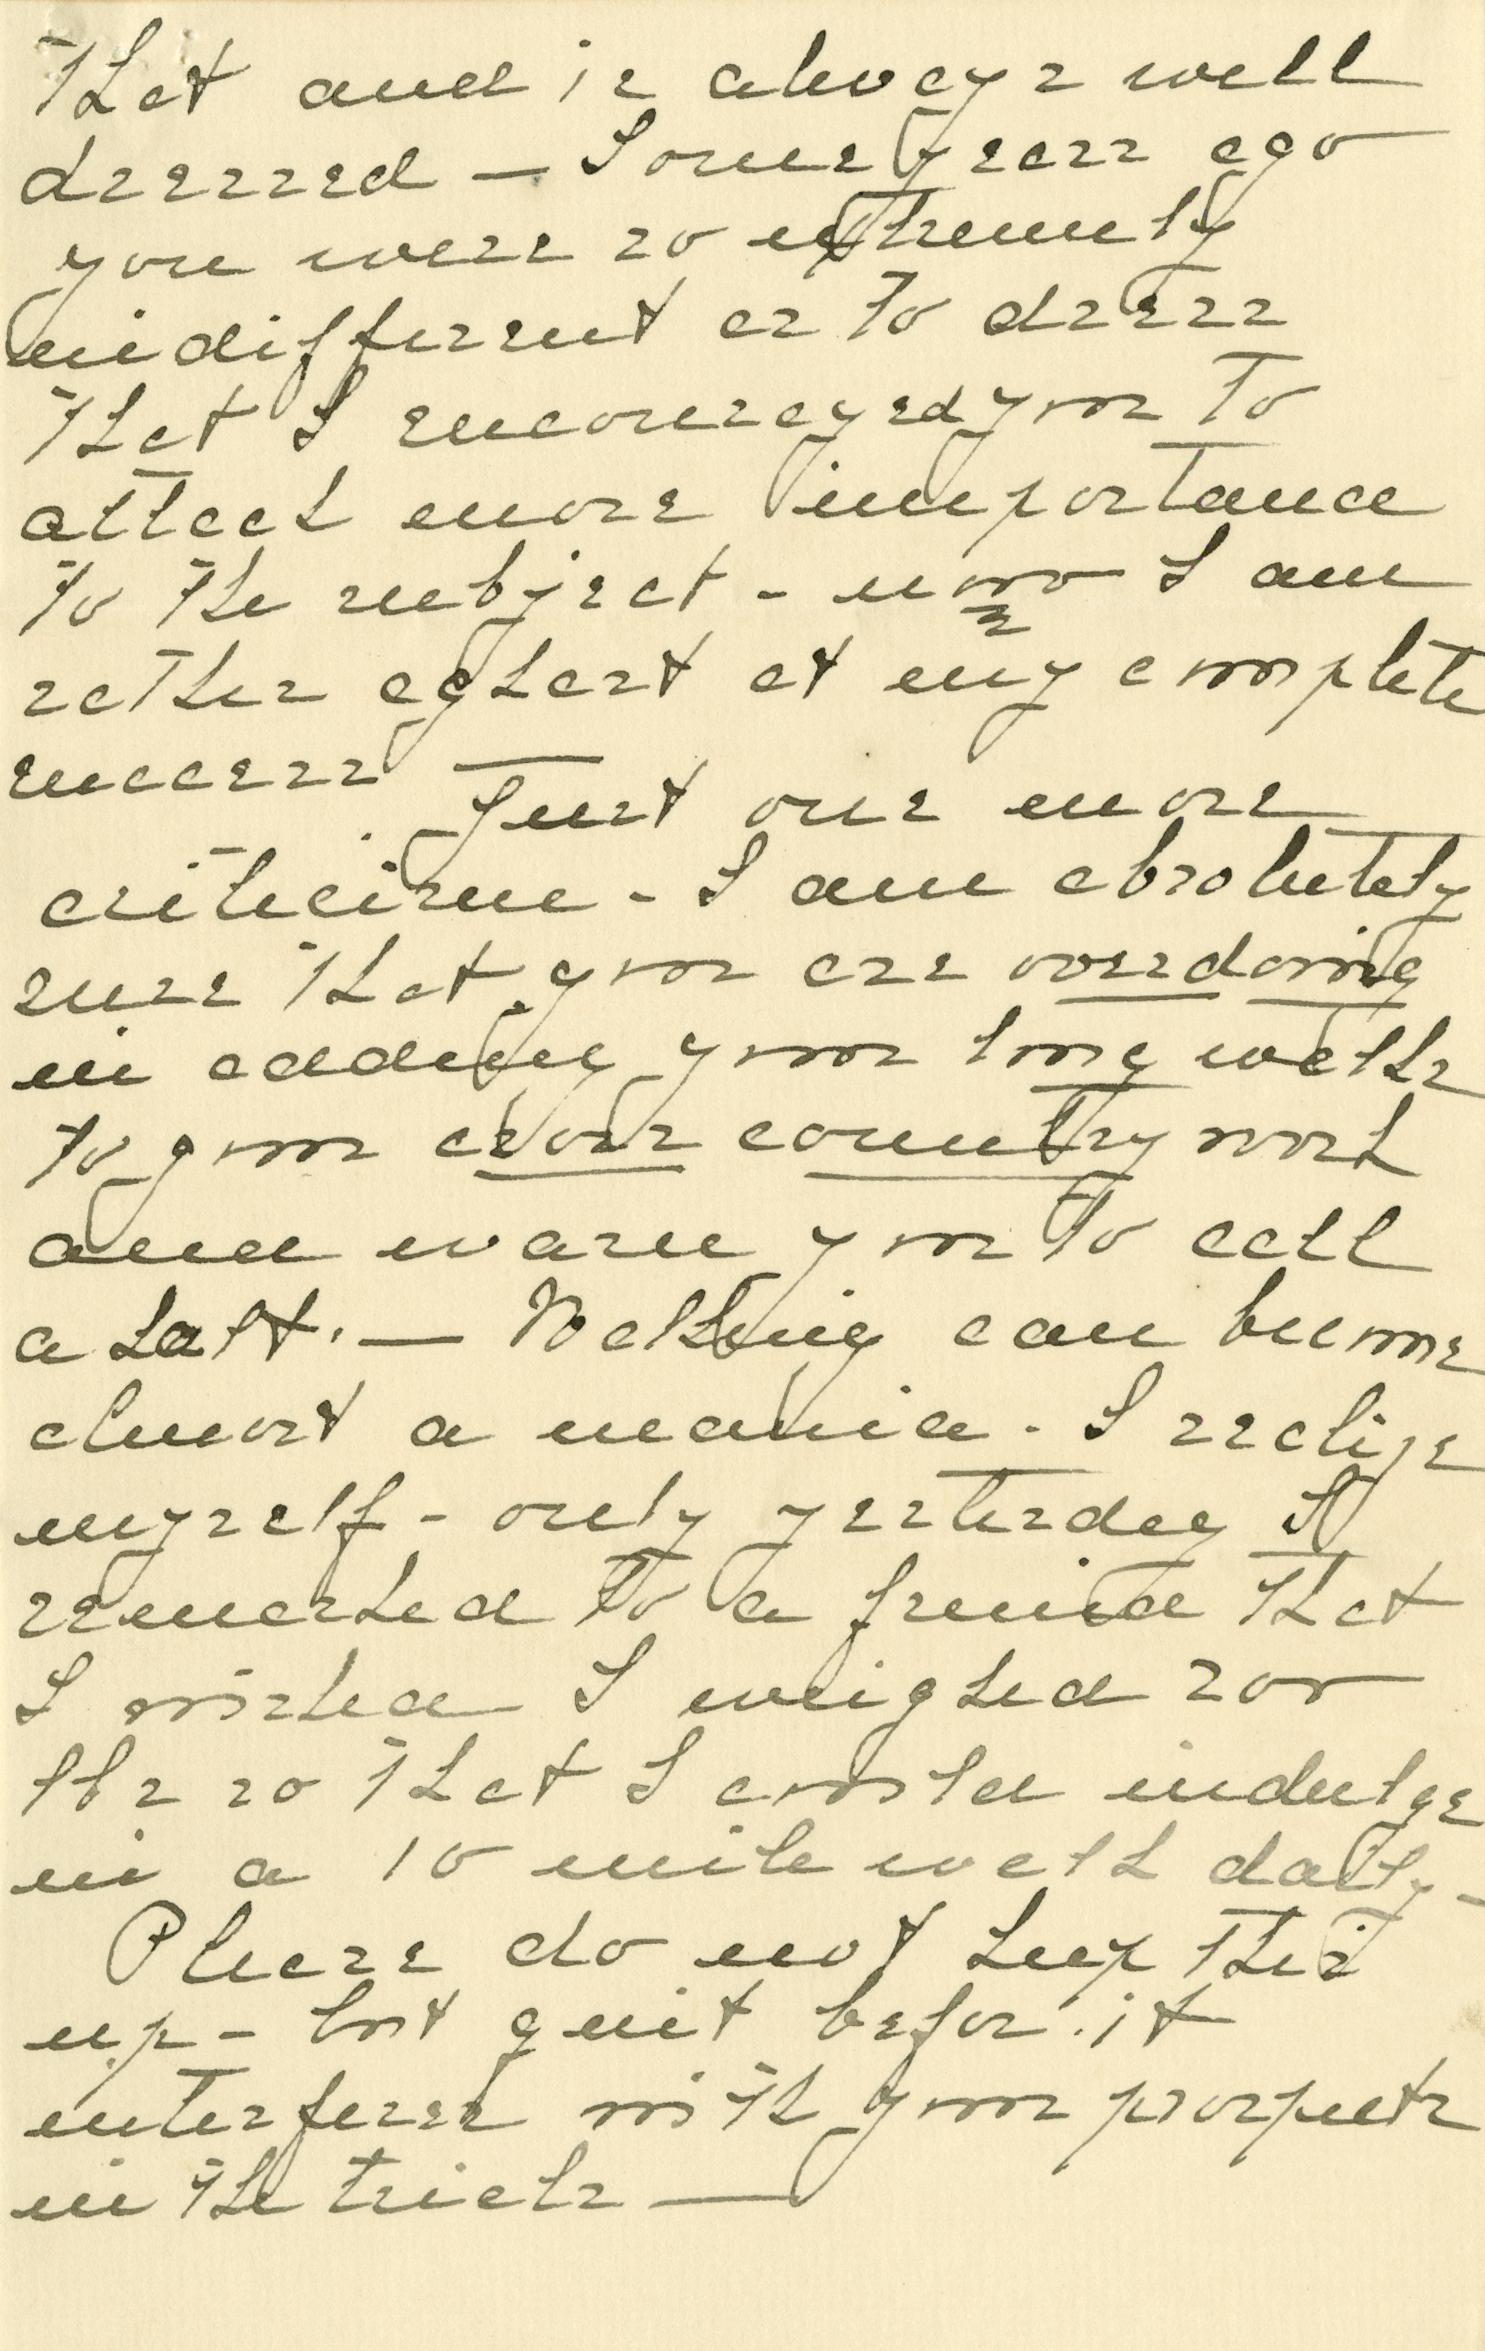 that and is always well
dressed — Some years ago
you were so extremely
indifferent as to dress
that I encouraged you to
attach more importance
to the subject - now I am
rather aghast at my complete
success Just one more
criticism - I am absolutely
sure that you are overdoing
in adding your long walks
to your cross country work
and warn you to call
a halt. — Walking can become
almost a mania. I realize
myself - only yesterday I
remarked to a friend that
I wished I weighed 200
lbs so that I could indulge
in a 10 mile walk daily -
Please do not keep this
up - but quit before it
interferes with your prospects
in the trials —